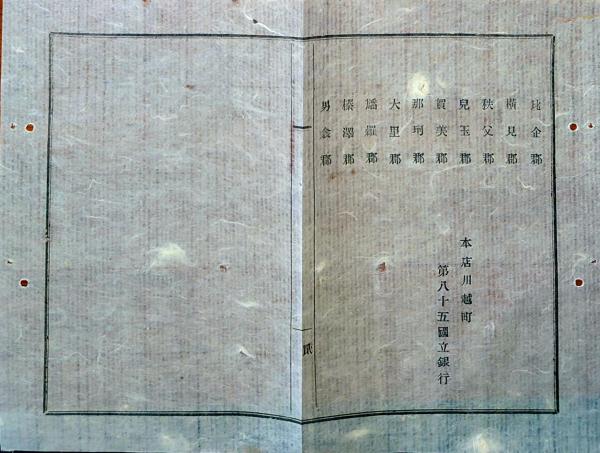 比企郡
横見郡
秩父郡
兒玉郡
賀美郡
那珂郡
大里郡
旛羅郡
榛澤郡
男衾郡
本店川越町
第八十五國立銀行